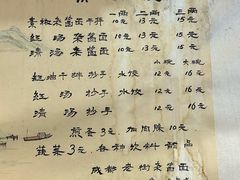 一两 二两 三两
素椒杂酱面干拌 10元 13元 15元
红汤杂酱面 10元 13元 15元
清汤杂酱面 10元 13元 15元
小碗 大碗
红油干拌抄手 水饺 12元 16元
红汤抄手 水饺 12元 16元
清汤抄手 12元 16元
煎蛋3元 加肉臊10元
蔬菜3元 各种饮料
成都老街杂酱面